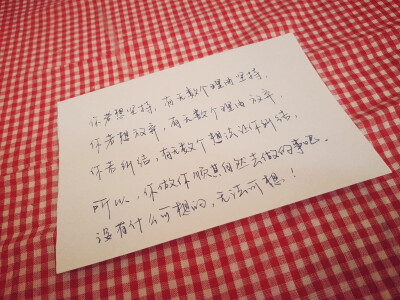 你若想坚持,有无数个理由坚持,
你若想放弃,有无数个理由放弃.
你若纠结,有无数个想法让你纠结;
所以,你做你顺其自然去做的事吧.
没有什么可想的,无法可想!